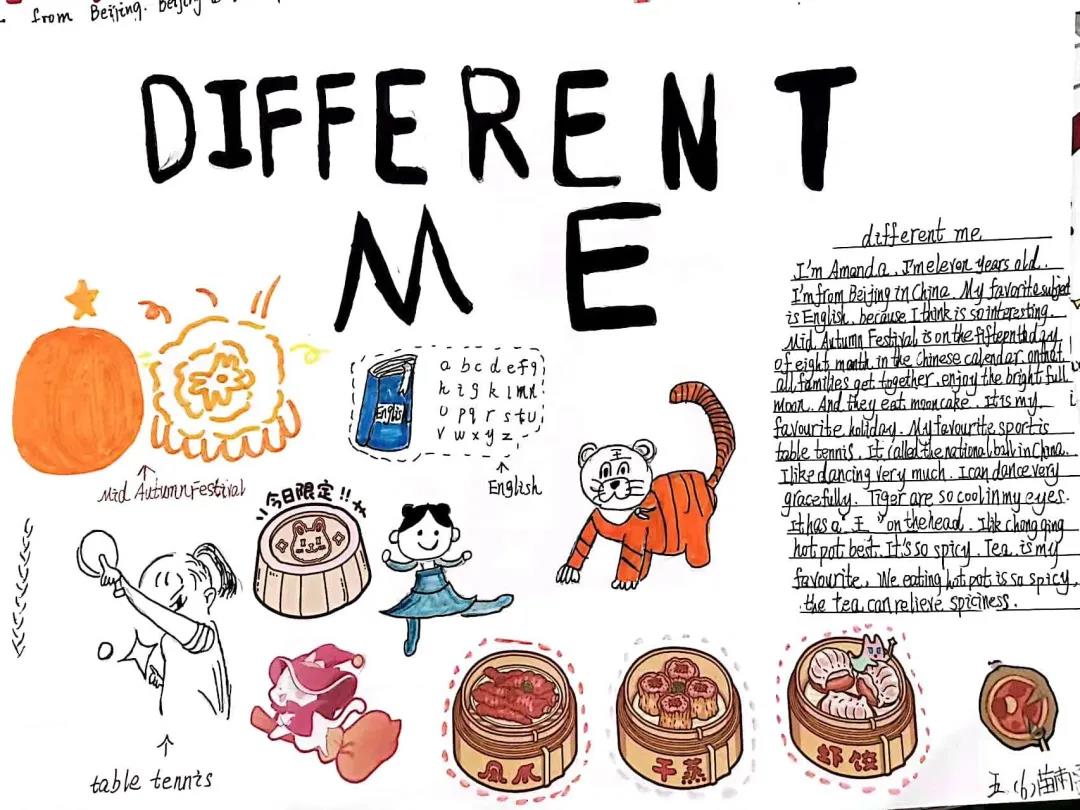 from Beijing. Beijing
DIFFERENT
ME
different me
I'm Amanda. I'm eleven years old.
I'm from Beijing in China. My favorite subject
is English. because I think is so interesting.
Mid Autumn Festival is on the fifteenth day
of eight month in the Chinese calendar. on that
all families get together. enjoy the bright full
moon. And they eat mooncake. It is my
favourite holiday. My favourite sport is
table tennis. It called the national ball in China.
I like dancing very much. I can dance very
gracefully. Tiger are so cool in my eyes.
It has a "王" on the head. I lik chong qing
hot pot best. It's so spicy. Tea is my
favourite. We eating hot pot is so spicy.
the tea can relieve spiciness.
Mid Autumn Festival
English
a b c d e f g
h i g k l m n
o p q r s t u
v w x y z
English
今日限定!!
王
table tennis
凤爪
干蒸
虾饺
五(6)